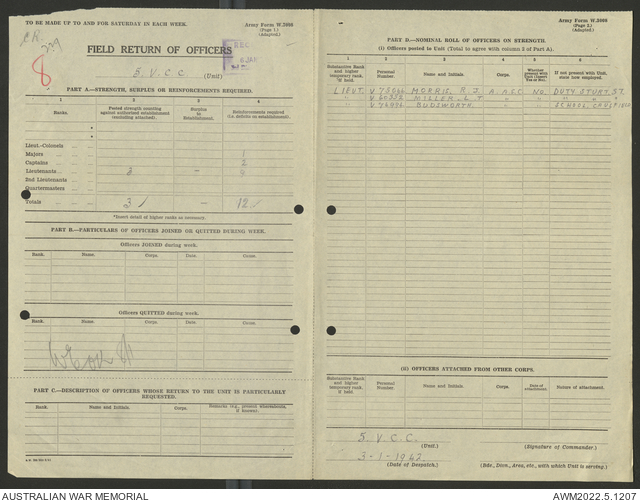 TO BE MADE UP TO AND FOR SATURDAY IN EACH WEEK.
Army Form W.3008
(Page 1.)
(Adapted.)
8
FIELD RETURN OF OFFICERS
5. V.C.C. (Unit)
PART A—STRENGTH, SURPLUS OR REINFORCEMENTS REQUIRED.
1 2 3 4
Ranks. Posted strength counting against authorized establishment (excluding attached). Surplus to Establishment. Reinforcements required (i.e. deficits on establishment).
Lieut.-Colonels
Majors 1
Captains 2
Lieutenants 3 – 9
2nd Lieutenants
Quartermasters
Totals 3 – 12
*Insert detail of higher ranks as necessary.
PART B.—PARTICULARS OF OFFICERS JOINED OR QUITTED DURING WEEK.
Officers JOINED during week.
Rank. Name. Corps. Date. Cause.
Officers QUITTED during week.
Rank. Name. Corps. Date. Cause.
PART C.—DESCRIPTION OF OFFICERS WHOSE RETURN TO THE UNIT IS PARTICULARLY REQUESTED.
Rank. Name and Initials. Corps. Remarks (e.g., present whereabouts, if known).
Army Form W.3008
(Page 2.)
(Adapted.)
PART D.—NOMINAL ROLL OF OFFICERS ON STRENGTH.
(i) Officers posted to Unit (Total to agree with column 2 of Part A).
1 2 3 4 5 6
Substantive Rank and higher temporary rank, if held. Personal Number. Name and Initials. Corps. Whether present with Unit (Insert Yes or No). If not present with Unit, state how employed.
LIEUT. MORRIS. R J A.A.S.C. NO. DUTY
MILLER L T " " "
DUDSWORTH. " " SCHOOL
(ii) OFFICERS ATTACHED FROM OTHER CORPS.
Substantive Rank and higher temporary rank, if held. Personal Number. Name and Initials. Corps. Date of Attachment. Nature of Attachment.
5. V.C.C.
(Unit.) (Signature of Commander.)
3-1-1942
(Date of Despatch.) (Bde., Dism., Area, etc., with which Unit is serving.)
AUSTRALIAN WAR MEMORIAL AWM2022.5.1207